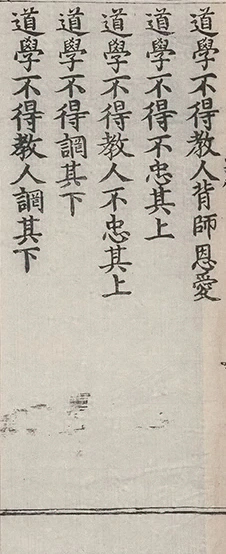 道學不得教人背師恩愛
道學不得不忠其上
道學不得教人不忠其上
道學不得調其下
道學不得教人調其下